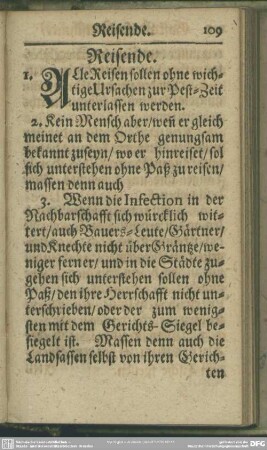 Reisende. 109
Reisende.
1. ALle Reisen sollen ohne wich-
tige Ursachen zur Pest-Zeit
unterlassen werden.
2. Kein Mensch aber/ weñ er gleich
meinet an dem Orthe genungsam
bekannt zuseyn/ wo er hinreiset/ sol
sich unterstehen ohne Paß zu reisen/
massen denn auch
3. Wenn die Infection in der
Nachbarschafft sich würcklich wit-
tert/ auch Bauers-Leute/ Gärtner/
und Knechte nicht über Gräntze/ we-
niger ferner/ und in die Städte zu-
gehen sich unterstehen sollen ohne
Paß/ den ihre Herrschafft nicht un-
terschrieben/ oder der zum wenig-
sten mit dem Gerichts-Siegel be-
siegelt ist. Massen denn auch die
Landsassen selbst von ihren Gerich-
ten